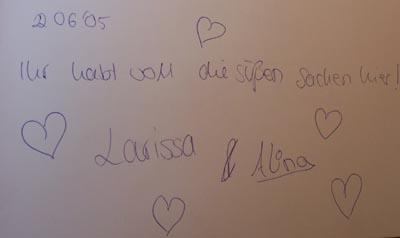 2 06'05
Ihr habt voll die süßen sachen hier!
Larissa & Alina